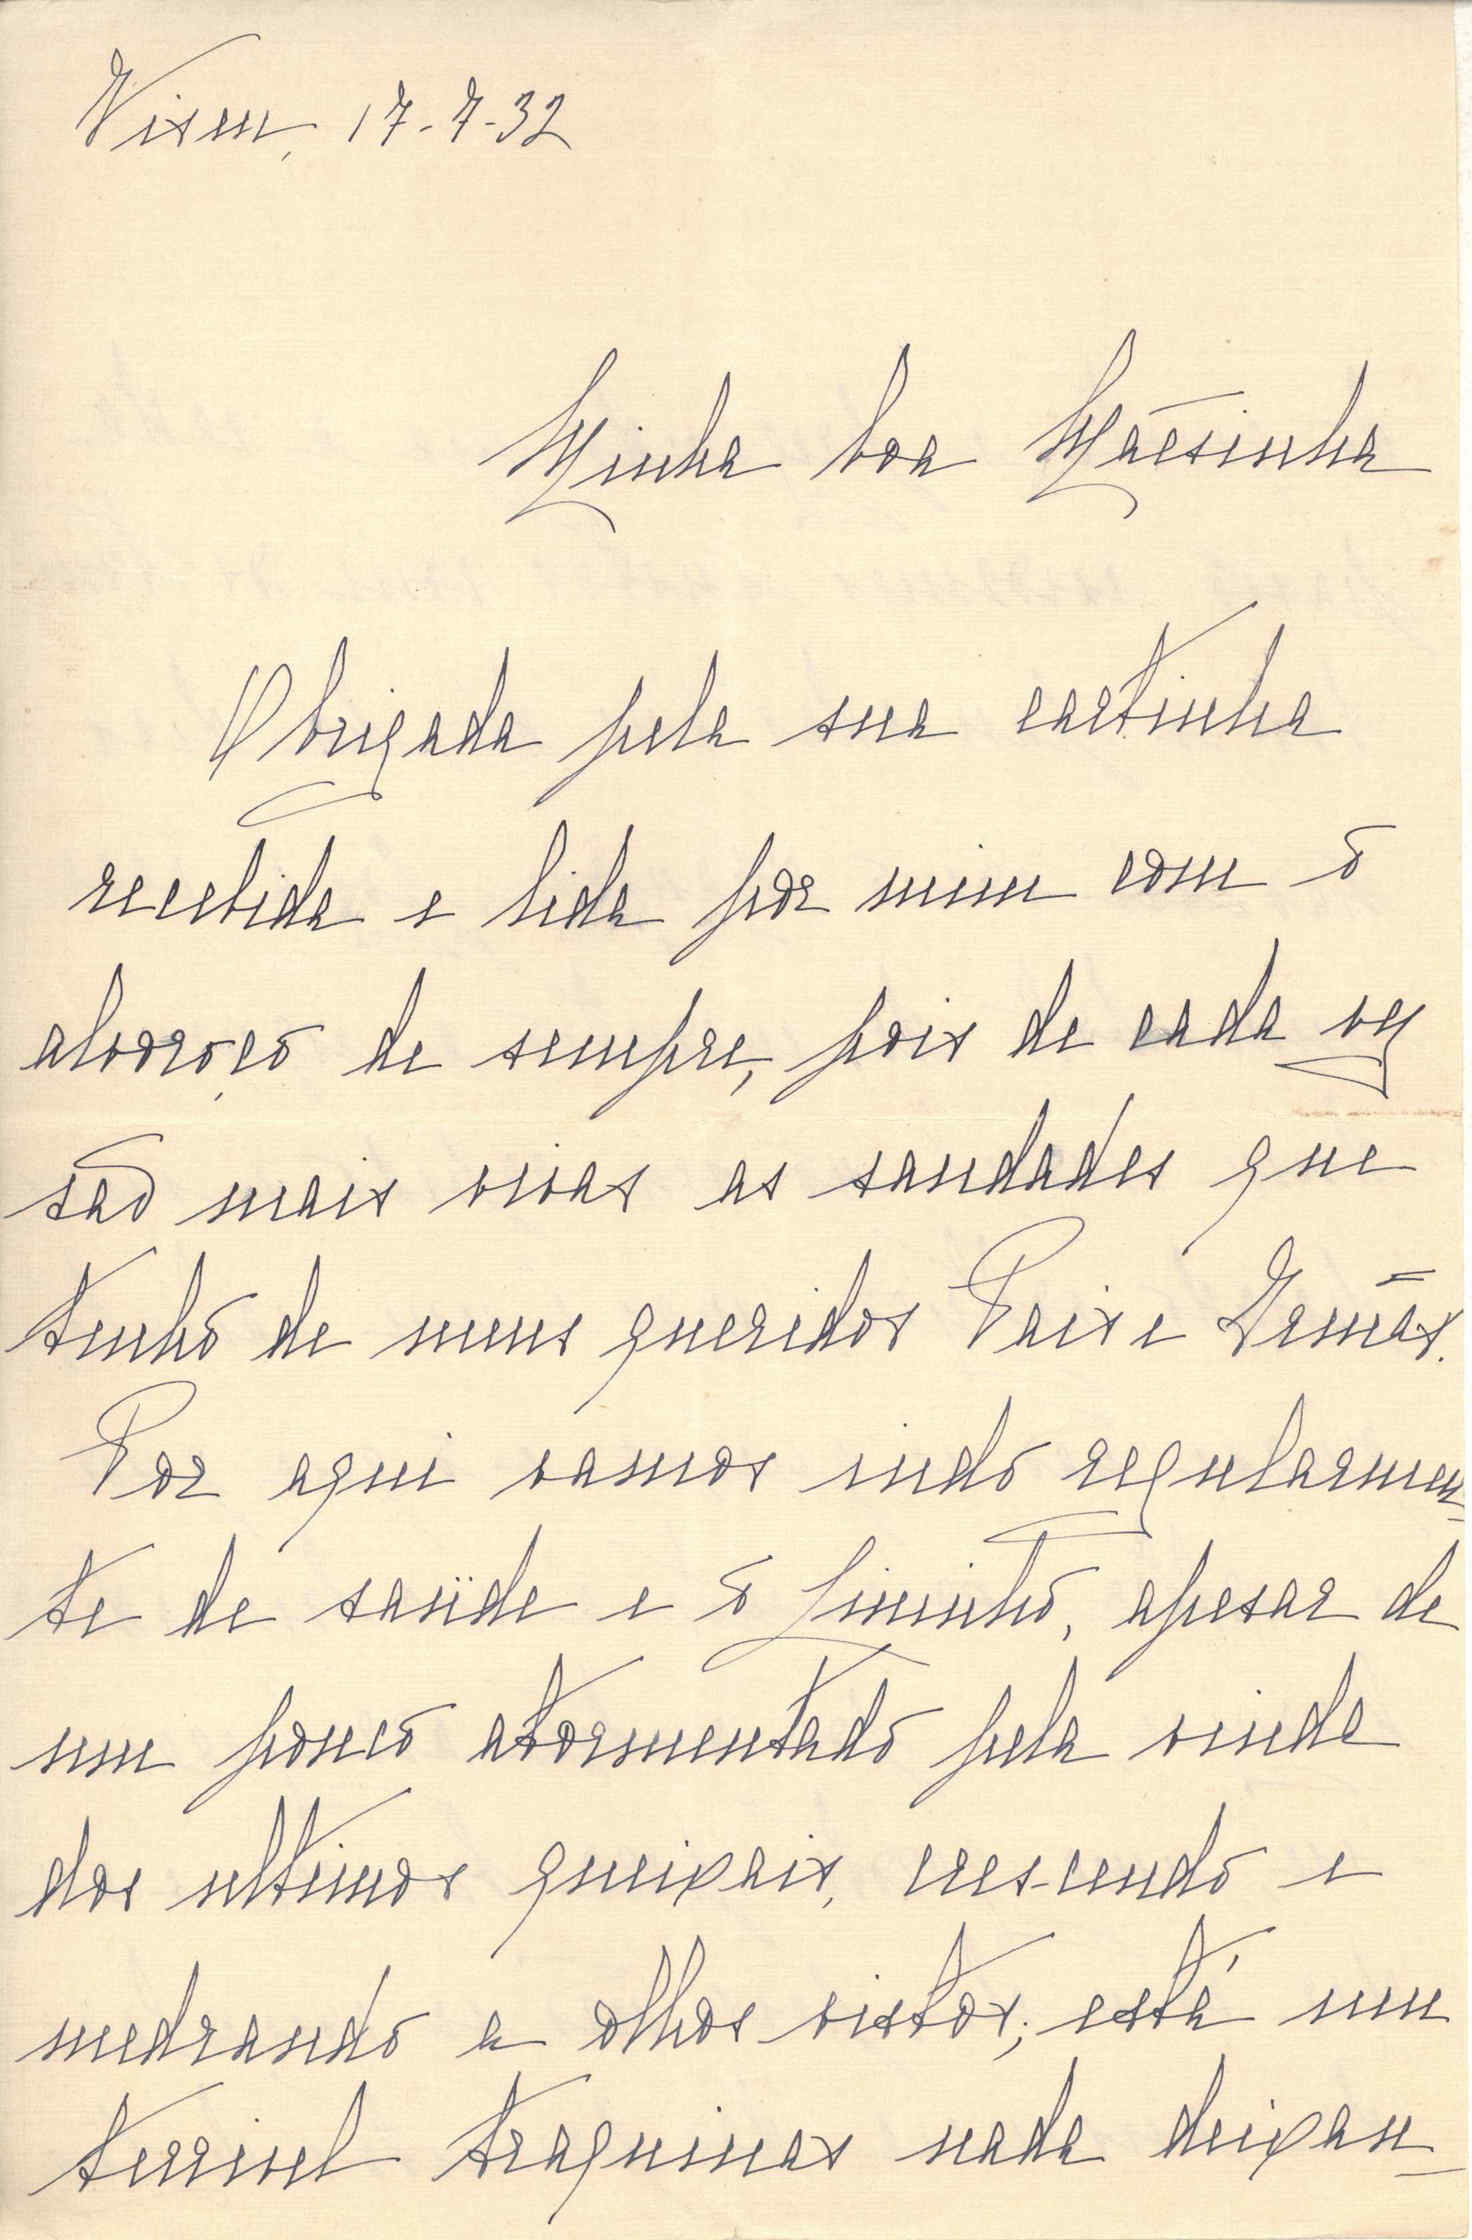 Viseu, 17-7-32
Minha boa Mãesinha
Obrigada pela sua cartinha
recebida e lida por mim com o
alvoroço de sempre, pois de cada vez
são mais vivas as saudades que
tenho de meus queridos Pais e Irmãs.
Por aqui vamos indo regularmen-
te de saúde e o Lininho, apesar de
um pouco atormentado pela vinda
dos ultimos queixais, crescendo e
medrando a olhos vistos; está um
terrivel traquinas nada deixan-